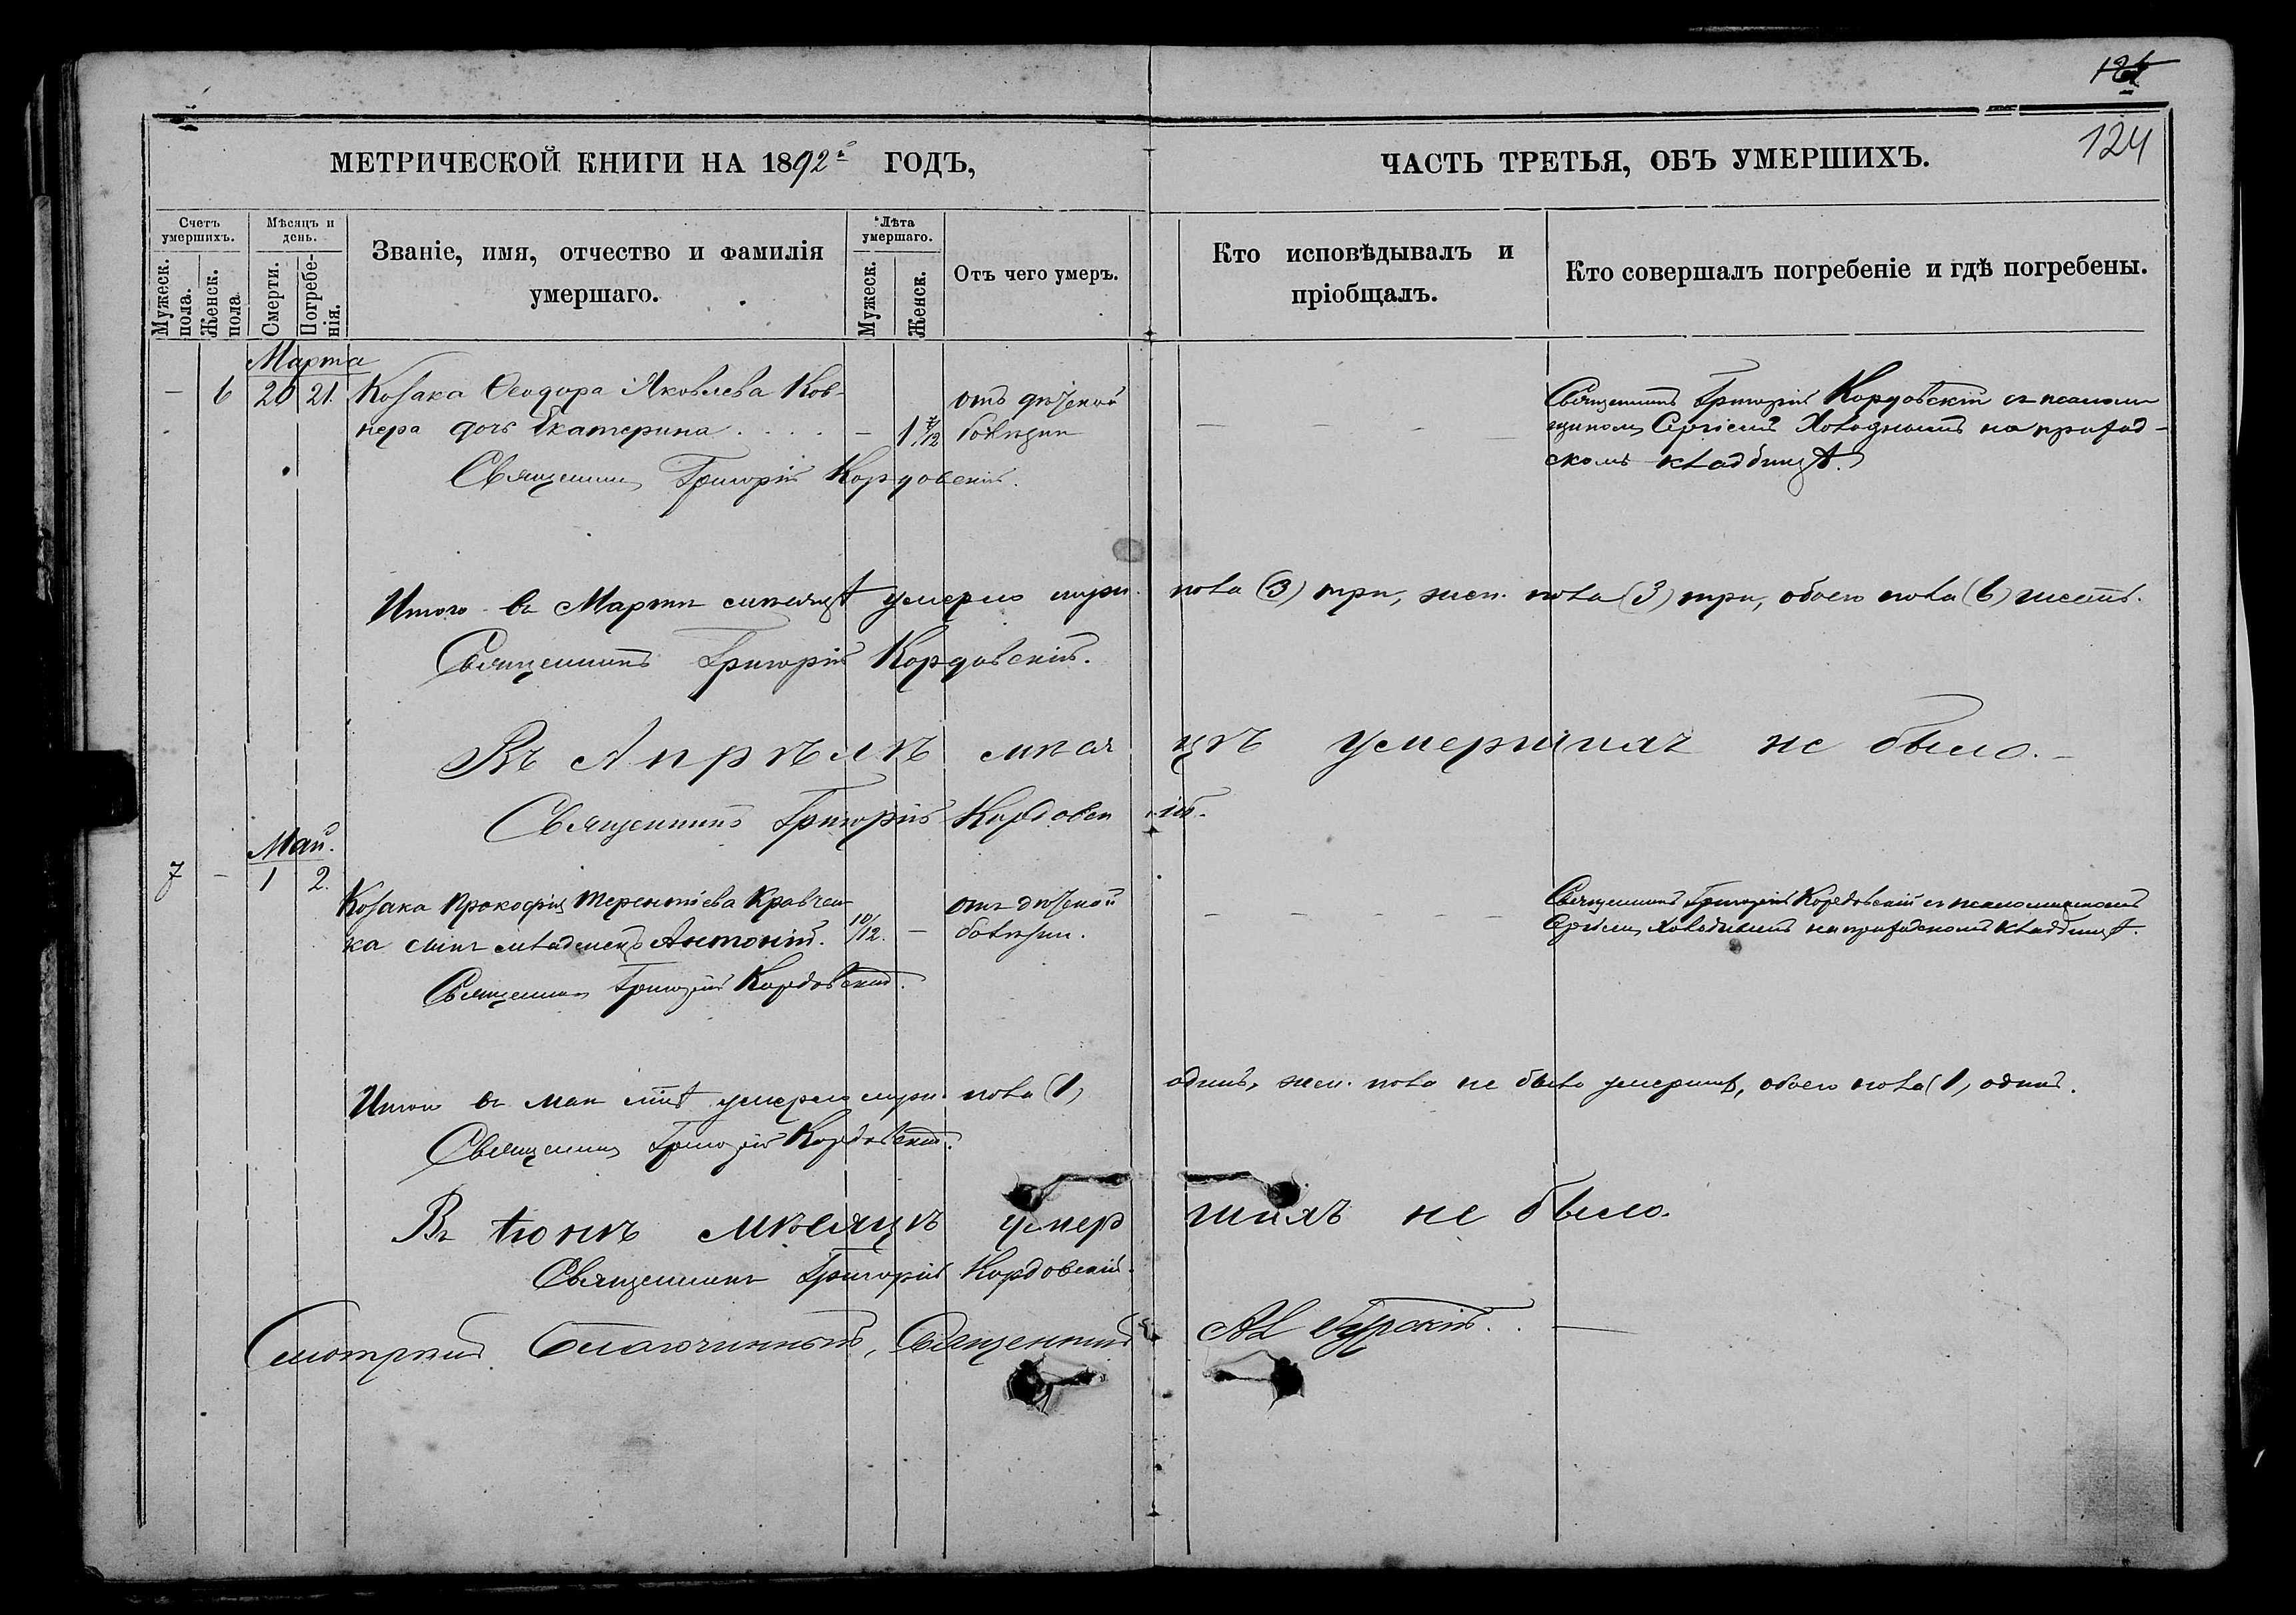 124
МЕТРИЧЕСКОЙ КНИГИ НА 1892й ГОДЪ,
ЧАСТЬ ТРЕТЬЯ, ОБЪ УМЕРШИХЪ.
Счетъ умершихъ.
Мужеск. пола.
Женск. пола
Мѣсяцъ и день.
Смерти.
Погребенія.
Званіе, имя, отчество и фамилія
умершаго.
Лѣта умершаго.
Мужеск.
Женск.
Отъ чего умеръ.
Кто исповѣдывалъ и
пріобщалъ.
Кто совершалъ погребеніе и гдѣ погребены.
Марта
— 6 20 21. Козака Ѳеодора Яковлева Ков-
нера дочь Екатерина . . . . —
отъ дѣтской
болѣзни
Священникъ Григорій Кордовскій съ псалом
щикомъ Сергіемъ Холоднымъ на приход-
скомъ кладбищѣ.
Священникъ Григорій Кордовскій.
Итого въ Мартѣ мѣсяцѣ умерло муж. пола (3) три, жен. пола (3) три, обоего пола (6) шесть.
Священникъ Григорій Кордовскій.
Въ Апрѣлѣ мѣсяцѣ умершихъ не было.—
Священникъ Григорій Кордовскій.
Май.
7 — 1 2.
Козака Прокофія Терентіева Кравчен
ка сынъ младенецъ Антоній. 10/12. —
отъ дѣтской
болѣзни.
Священникъ Григорій Кордовскій съ псаломщикомъ
Сергіемъ Холоднымъ на приходскомъ кладбищѣ.
Священникъ Григорій Кордовскій.
Итого въ маѣ мцѣ умерло муж. пола (1) одинъ, жен. пола не было умершихъ, обоего пола (1) одинъ.
Священникъ Григорій Кордовскій.
Въ Іюнѣ мѣсяцѣ умершихъ не было.
Священникъ Григорій Кордовскій.
Смотрѣлъ Благочинный, Священникъ Ал Гурскій. . —